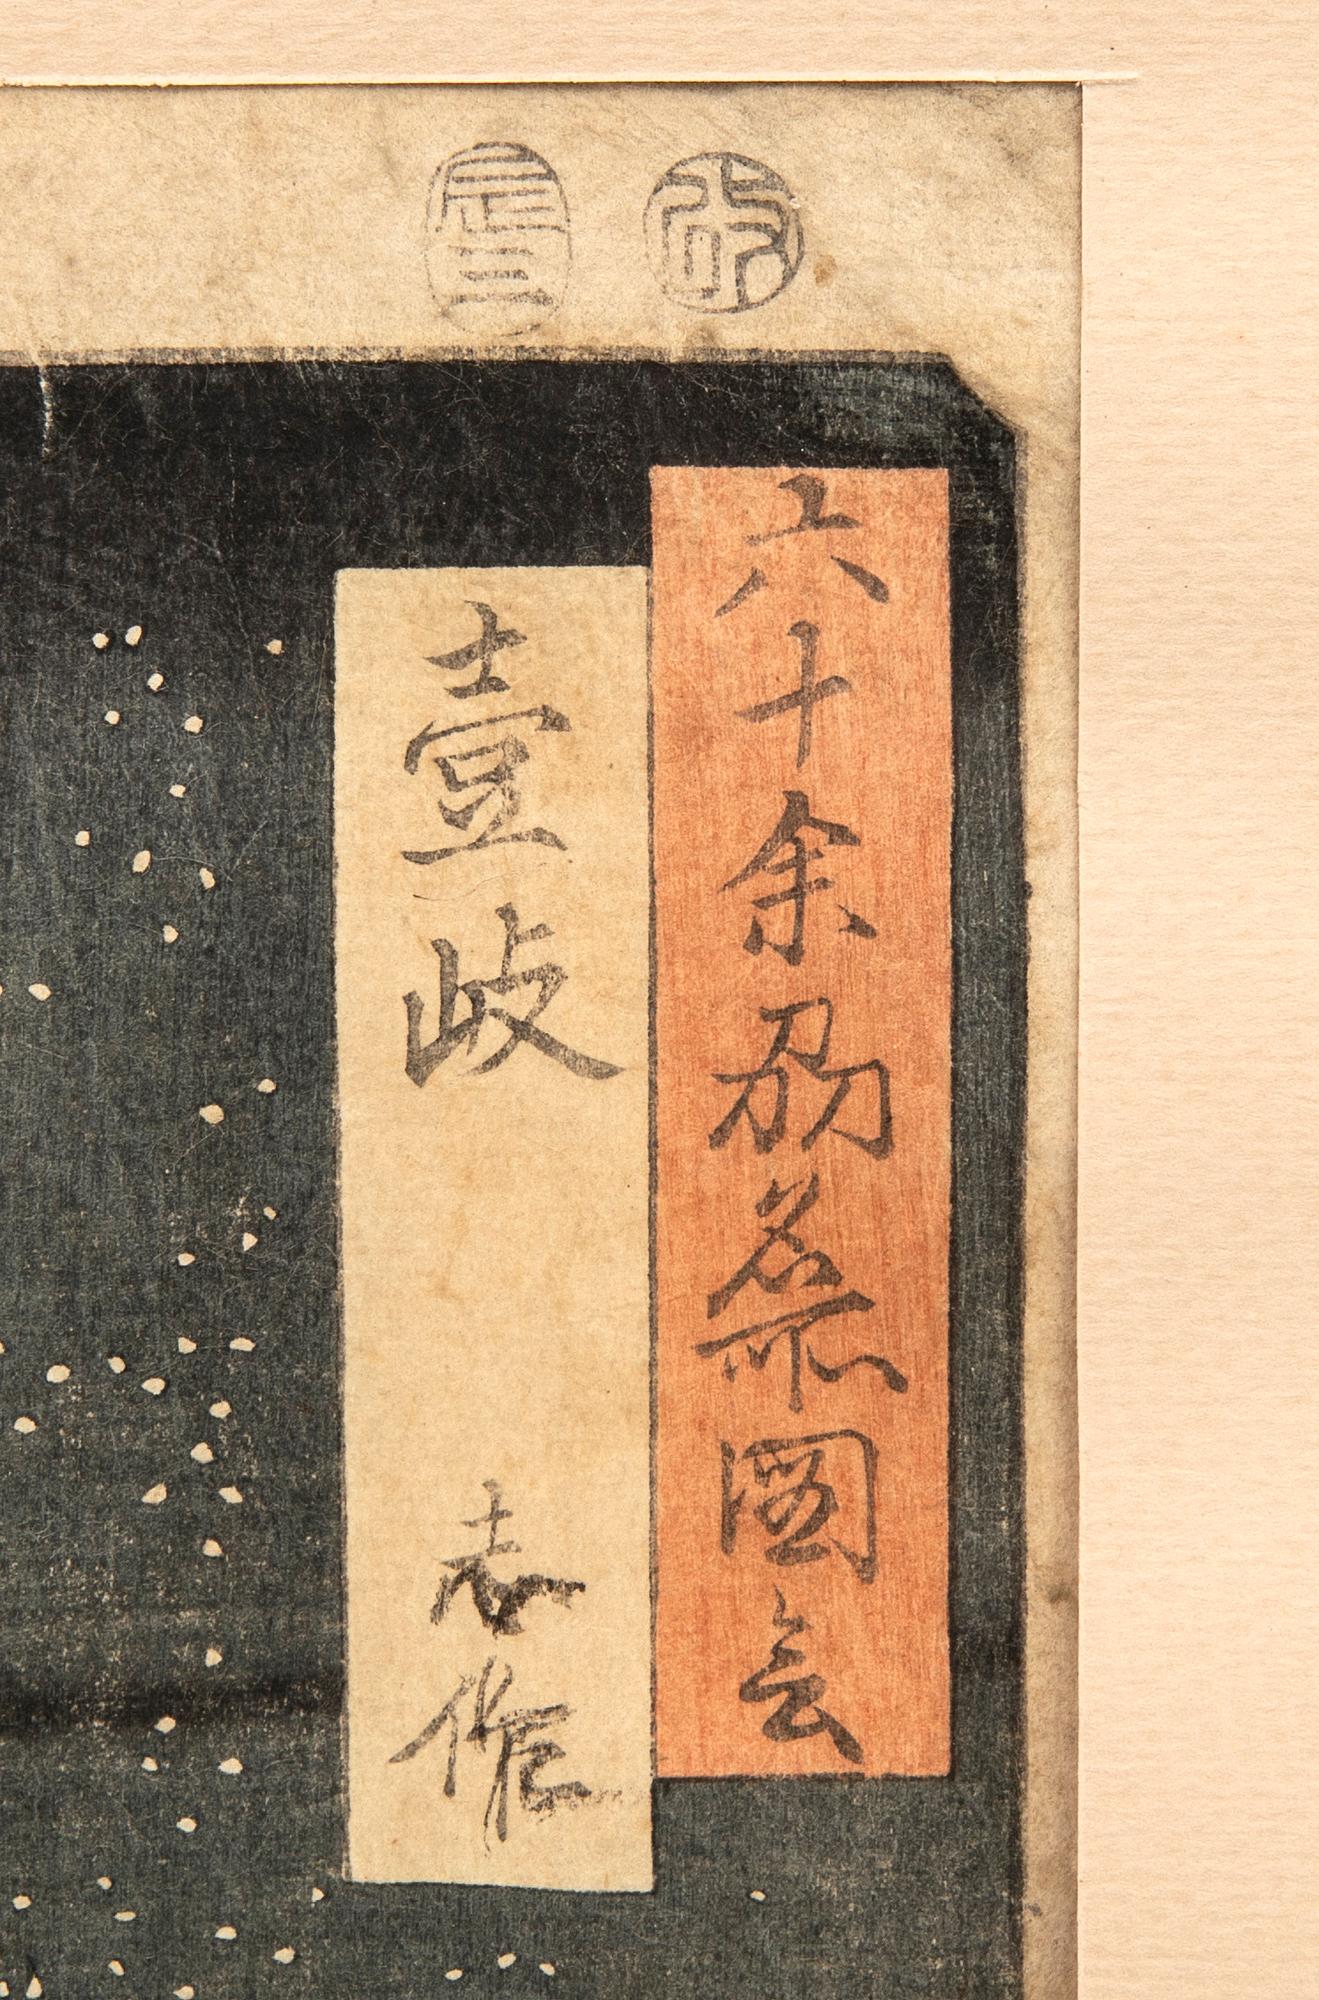 改
辰三
六十余刕名所圖会
壹岐
志作